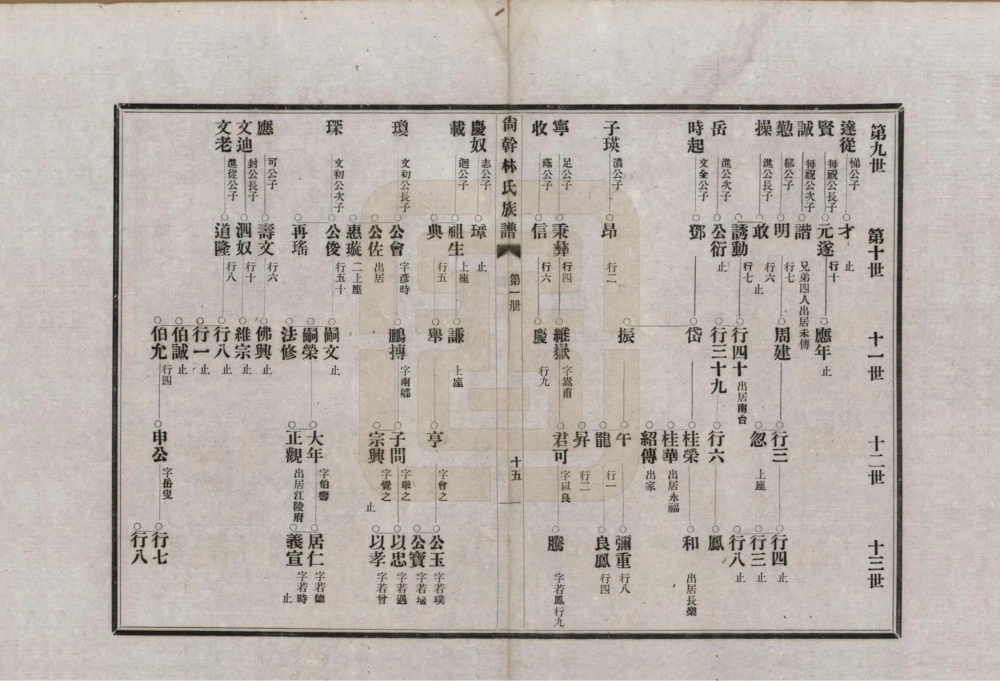 第九世
第十世
十一世
十二世
十三世
達從 悌公子
才 止
賢 每覞公長子
元遂 行十
應年 止
誠 每覞公次子
諧 兄弟四人出居未傳
勤 郁公子
明 行七
周建
行三
行四 止
操 進公長子
敢 行六 止
忽 上座
行三 止
誘動 行七
行四十 出居南台
行八 止
岳 進公次子
公衍 止
行三十九
行六
鳳
時起 文全公子
鄧
岱
桂榮
和 出居長樂
桂華 出居永福
紹傳 出家
子瑛 濃公子
昂 行二
振
午
彌重 行八
龍 行一
良鳳 行四
昇 行二
寧 足公子
秉彝 行四
維嶽 字嵩甫
君可 字以良
騰 字若鳳行九
收 蔭公子
信 行六
慶 行九
尙幹林氏族譜
第一册
十五
慶奴 志公子
璋 止
載 迥公子
祖生 上座
謙 上座
典 行五
舉
亨 字會之
公玉 字若璞
公寶 字若瑞
瓊 文初公長子
公會 字彥時
鵬摶 字南鄉
子問 字舉之
以忠 字若遇
宗興 字覺之 止
以孝 字若曾
公佐 出居
惠璇 二上座
琛 文初公次子
公俊 行五十
嗣文 止
再瑤
嗣榮
大年 字伯壽
居仁 字若德
法修
正觀 出居江陵府
義宣 字若時 止
應 可公子
壽文 行六
佛興 止
文迪 封公長子
泗奴 行十
維宗 止
文老 進從公子
道隆 行八
行八 止
行一 止
伯誠 止
伯允 行四
申公 字岳叟
行七
行八